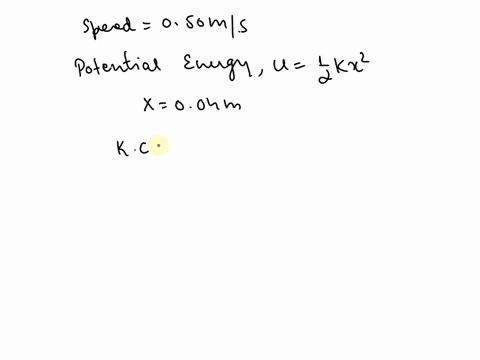 Speed = 0.50 m/s
Potential Energy, U = 1/2 Kx²
X = 0.04 m
K.C